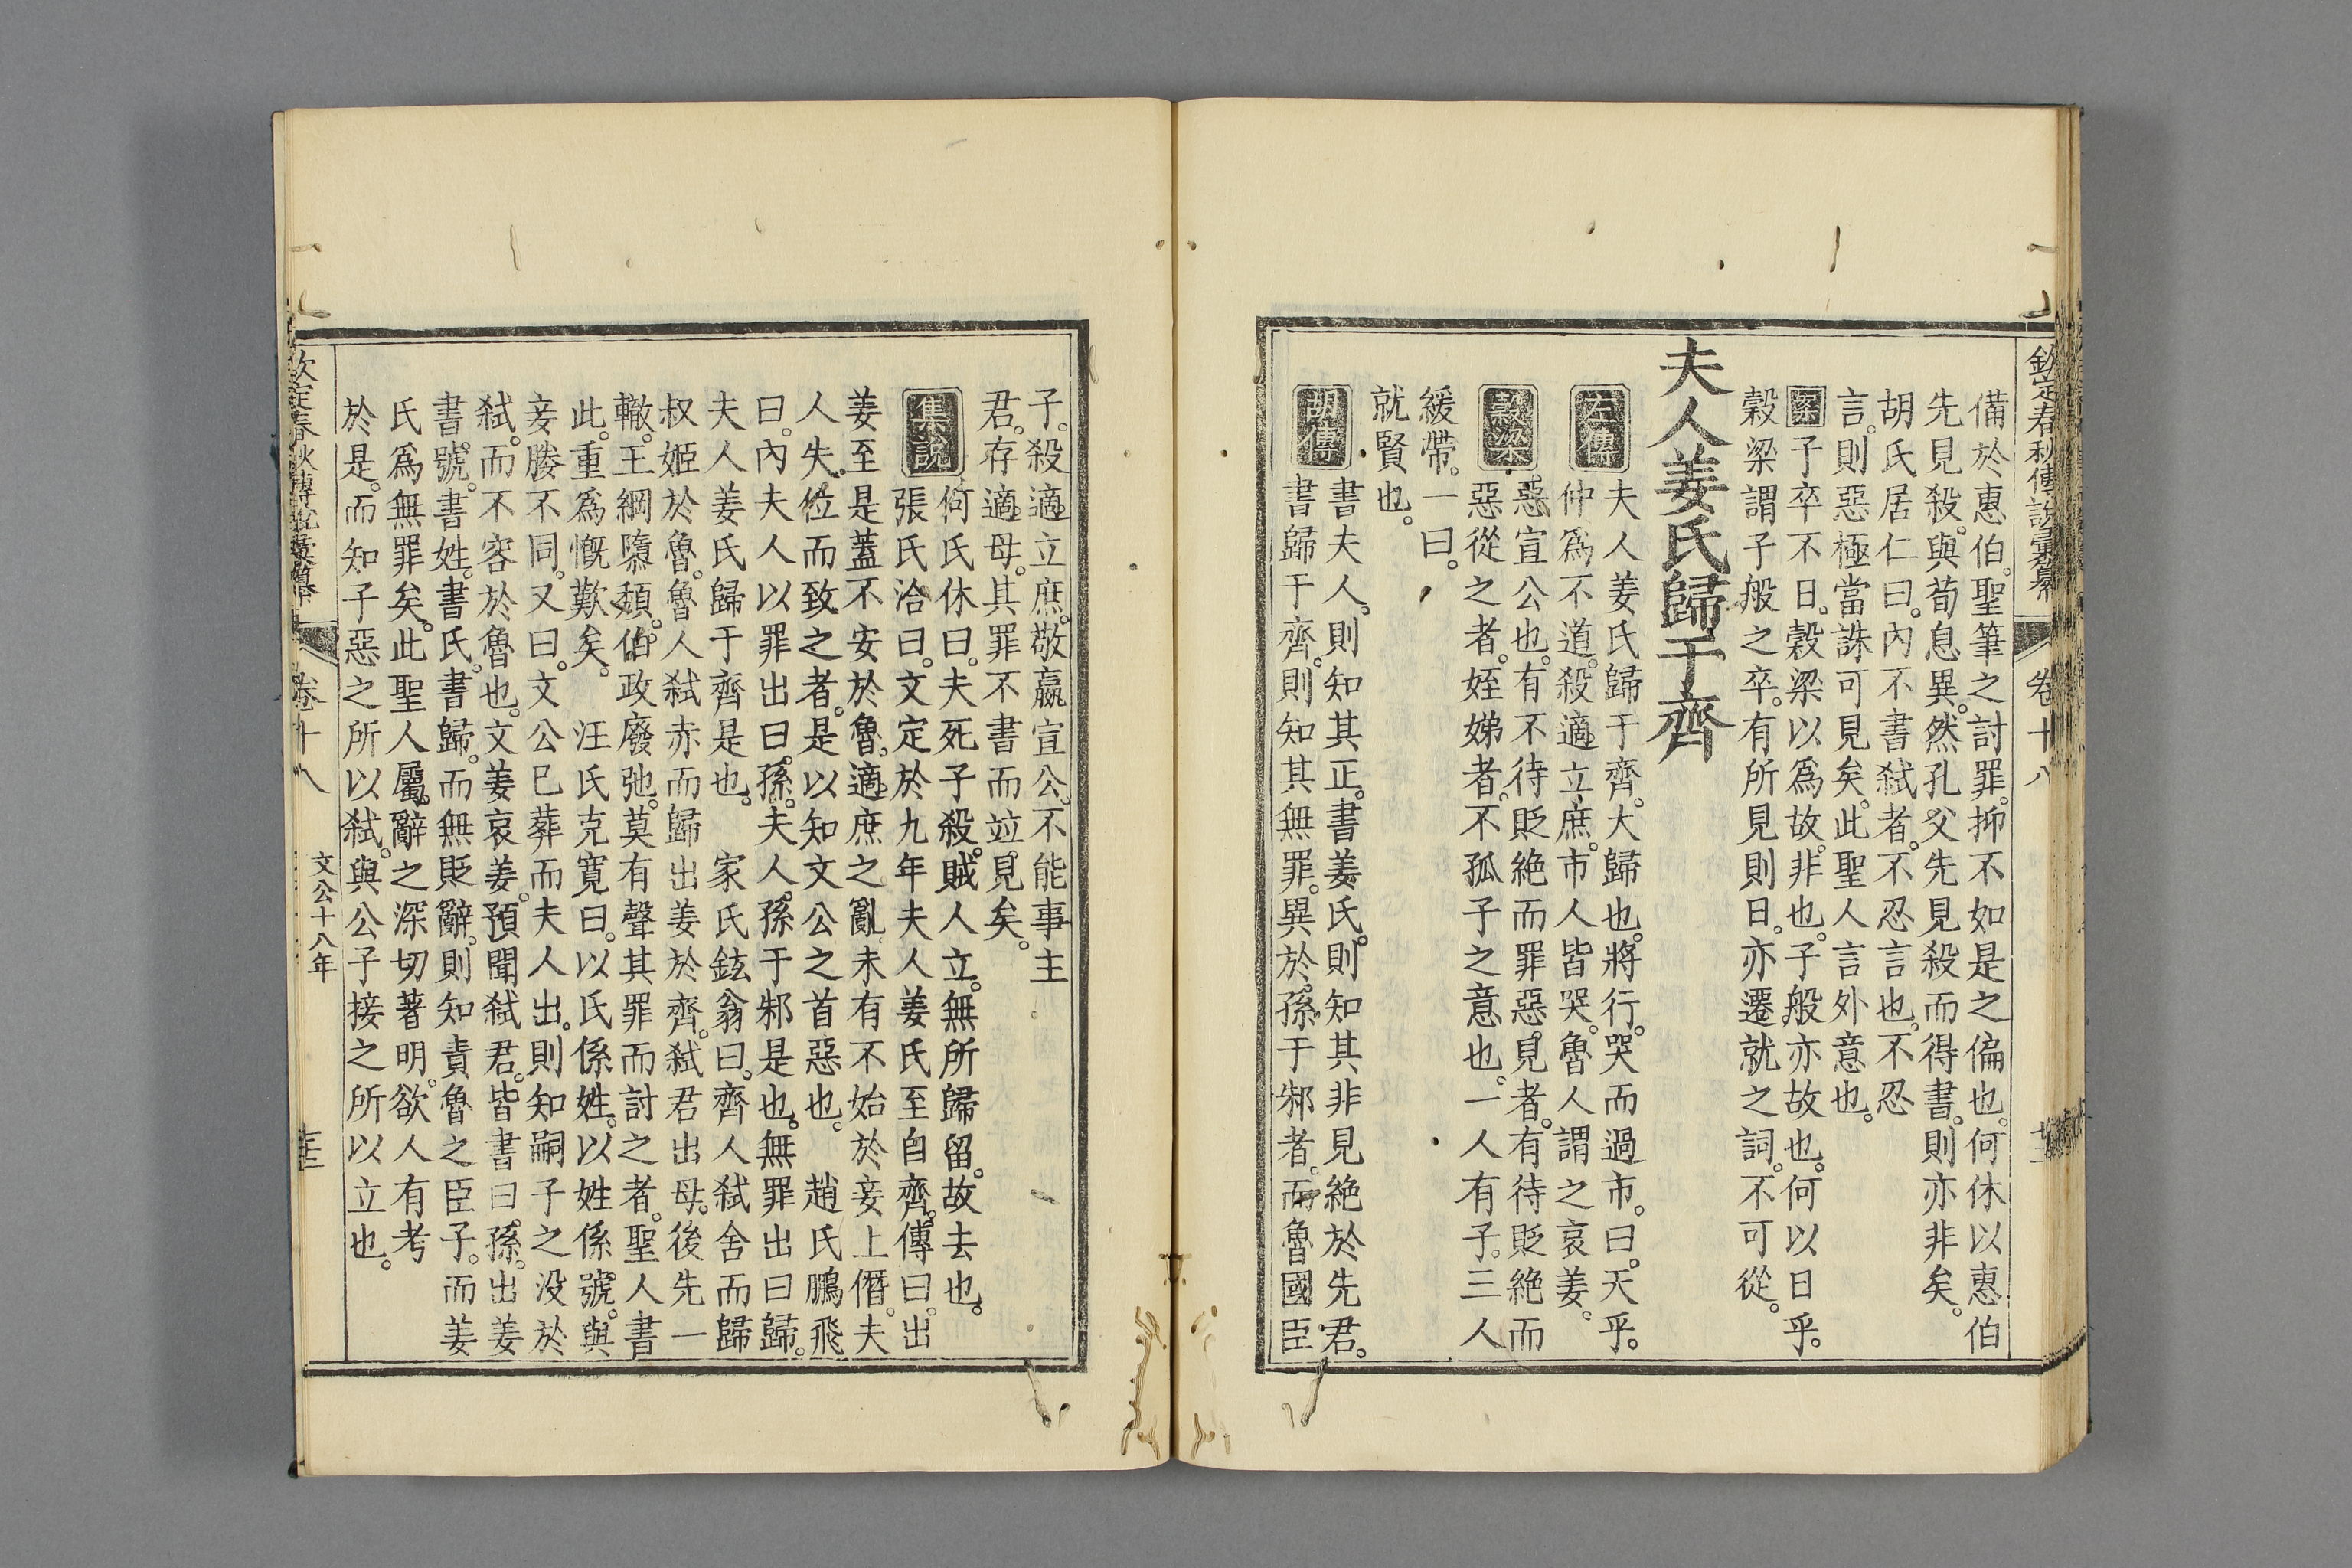 欽定春秋傳說彙纂 卷十八
備於惠伯。聖筆之討罪。抑不如是之偏也。何休以惠伯
先見殺。與荀息異。然孔父先見殺而得書。則亦非矣。
胡氏居仁曰。內不書弒者。不忍言也。不忍
言。則惡極當誅可見矣。此聖人言外意也。
案子卒不日。穀梁以爲故。非也。子般亦故也。何以日乎。
穀梁謂子般之卒。有所見則日。亦遷就之詞。不可從。
夫人姜氏歸于齊
左傳 夫人姜氏歸于齊。大歸也。將行。哭而過市。曰。天乎。
仲爲不道。殺適立庶。市人皆哭。魯人謂之哀姜。
穀梁 惡宣公也。有不待貶絕而罪惡見者。有待貶絕而
惡從之者。姪娣者。不孤子之意也。一人有子。三人
緩帶。一曰。
就賢也。
胡傳 書夫人。則知其正。書姜氏。則知其非見絕於先君。
書歸于齊。則知其無罪。異於孫于邾者。而魯國臣
子。殺適立庶。敬嬴宣公。不能事主
君。存適母。其罪不書而竝見矣。
集說 何氏休曰。夫死子殺。賊人立。無所歸留。故去也。
張氏洽曰。文定於九年夫人姜氏至自齊。傳曰。出
姜至是蓋不安於魯。適庶之亂。未有不始於妾上僭。夫
人失位而致之者。是以知文公之首惡也。 趙氏鵬飛
曰。內夫人以罪出曰孫。夫人孫于邾是也。無罪出曰歸。
夫人姜氏歸于齊是也。 家氏鉉翁曰。齊人弒舍而歸
叔姬於魯。魯人弒赤而歸出姜於齊。弒君出母。後先一
轍。王綱隳頹。伯政廢弛。莫有聲其罪而討之者。聖人書
此。重爲慨歎矣。 汪氏克寬曰。以氏係姓。以姓係號。與
妾媵不同。又曰。文公已葬而夫人出。則知嗣子之沒於
弒。而不容於魯也。文姜哀姜。預聞弒君。皆書曰孫。出姜
書號。書姓。書氏。書歸。而無貶辭。則知責魯之臣子。而姜
氏爲無罪矣。此聖人屬辭之深切著明。欲人有考
於是。而知子惡之所以弒。與公子接之所以立也。
欽定春秋傳說彙纂 卷十八 文公十八年